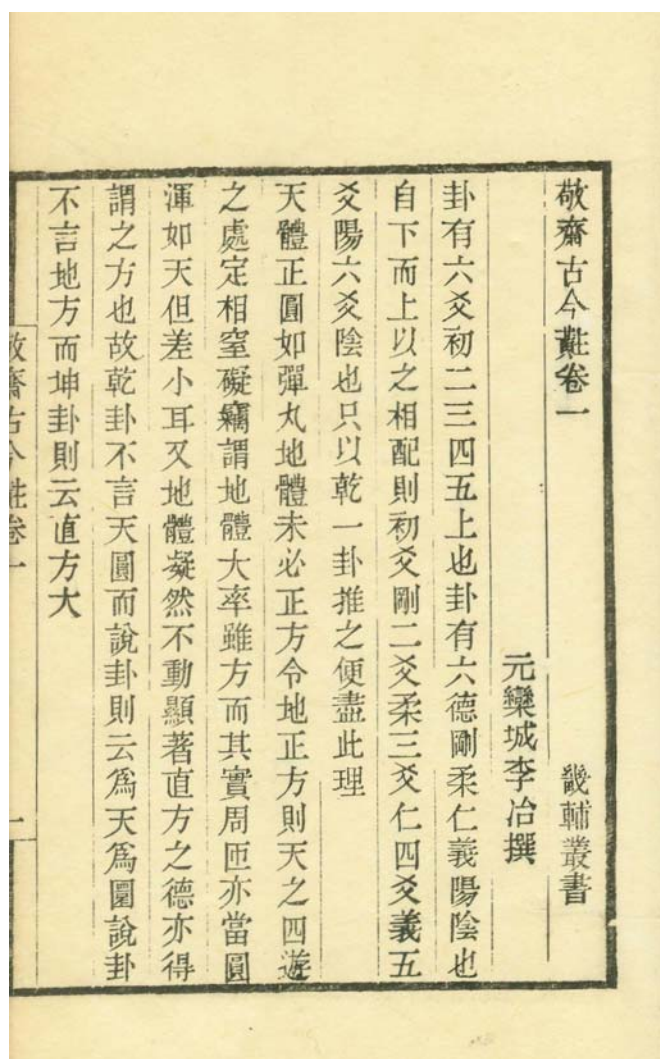 敬齋古今黈卷一
畿輔叢書
元欒城李冶撰
卦有六爻初二三四五上也卦有六德剛柔仁義陽陰也
自下而上以之相配則初爻剛二爻柔三爻仁四爻義五
爻陽六爻陰也只以乾一卦推之便盡此理
天體正圓如彈丸地體未必正方令地正方則天之四遊
之處定相窒礙竊謂地體大率雖方而其實周匝亦當圓
渾如天但差小耳又地體凝然不動顯著直方之德亦得
謂之方也故乾卦不言天圓而說卦則云爲天爲圜說卦
不言地方而坤卦則云直方大
敬齋古今黈卷一
一